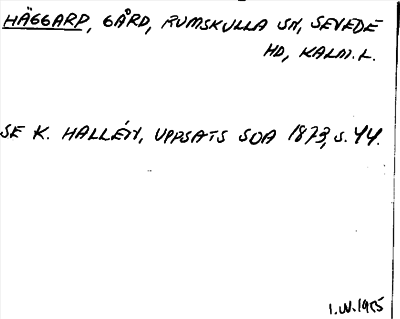 HÄGGARP, GÅRD, RUMSKULLA SN, SEVEDE
HD, KALM. L.
SE K. HALLÉN, UPPSATS SOA 1873, S. 44.